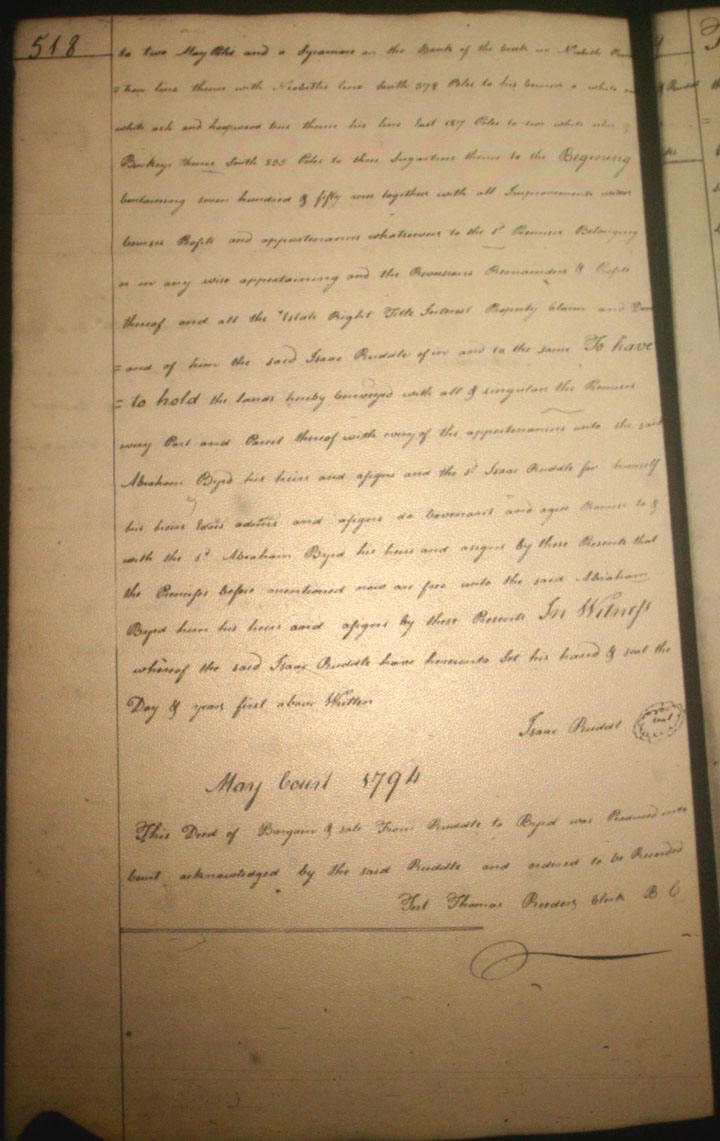 518
to two May Bles and a Sycamore on the Bank of the creek in Nisbeth
= line thence with Nesbiths line South 378 Poles to his corner a white
white ash and hoopwood tree thence his line East 187 Poles to two white
Buckeye thence South 235 Poles to three Sugartrees thence to the Begining
Containing seven hundred & fifty together with all Improvements water
Courses Profits and appurtenances whatsoever to the sd Premises Belonging
or in any wise appertaining and the Reversions Remainders & Profits
thereof and all the Estate Right Title Interest Property Claim and
= and of him the said Isaac Ruddle of in and to the same To have
= to hold the lands hereby Conveyed with all & singular the Premises
every Part and Parcel thereof with every of the appurtenances unto the said
Abraham Byrd his heirs and assigns and the sd Isaac Ruddle for himself
his heirs Exors admrs and assigns do Covenant and agree Promise to &
with the sd Abraham Byrd his heirs and assigns by these Presents that
the Premises before mentioned now are free unto the said Abraham
Byrd him his heirs and assigns by these Presents In Witness
whereof the said Isaac Ruddle have hereunto Set his hand & seal the
Day & year first above Written
Isaac Ruddle
seal
May Court 1794
This Deed of Bargain & sale From Ruddle to Byrd was Produced into
Court acknowledged by the said Ruddle and ordered to be Recorded
Test Thomas Clerk B C